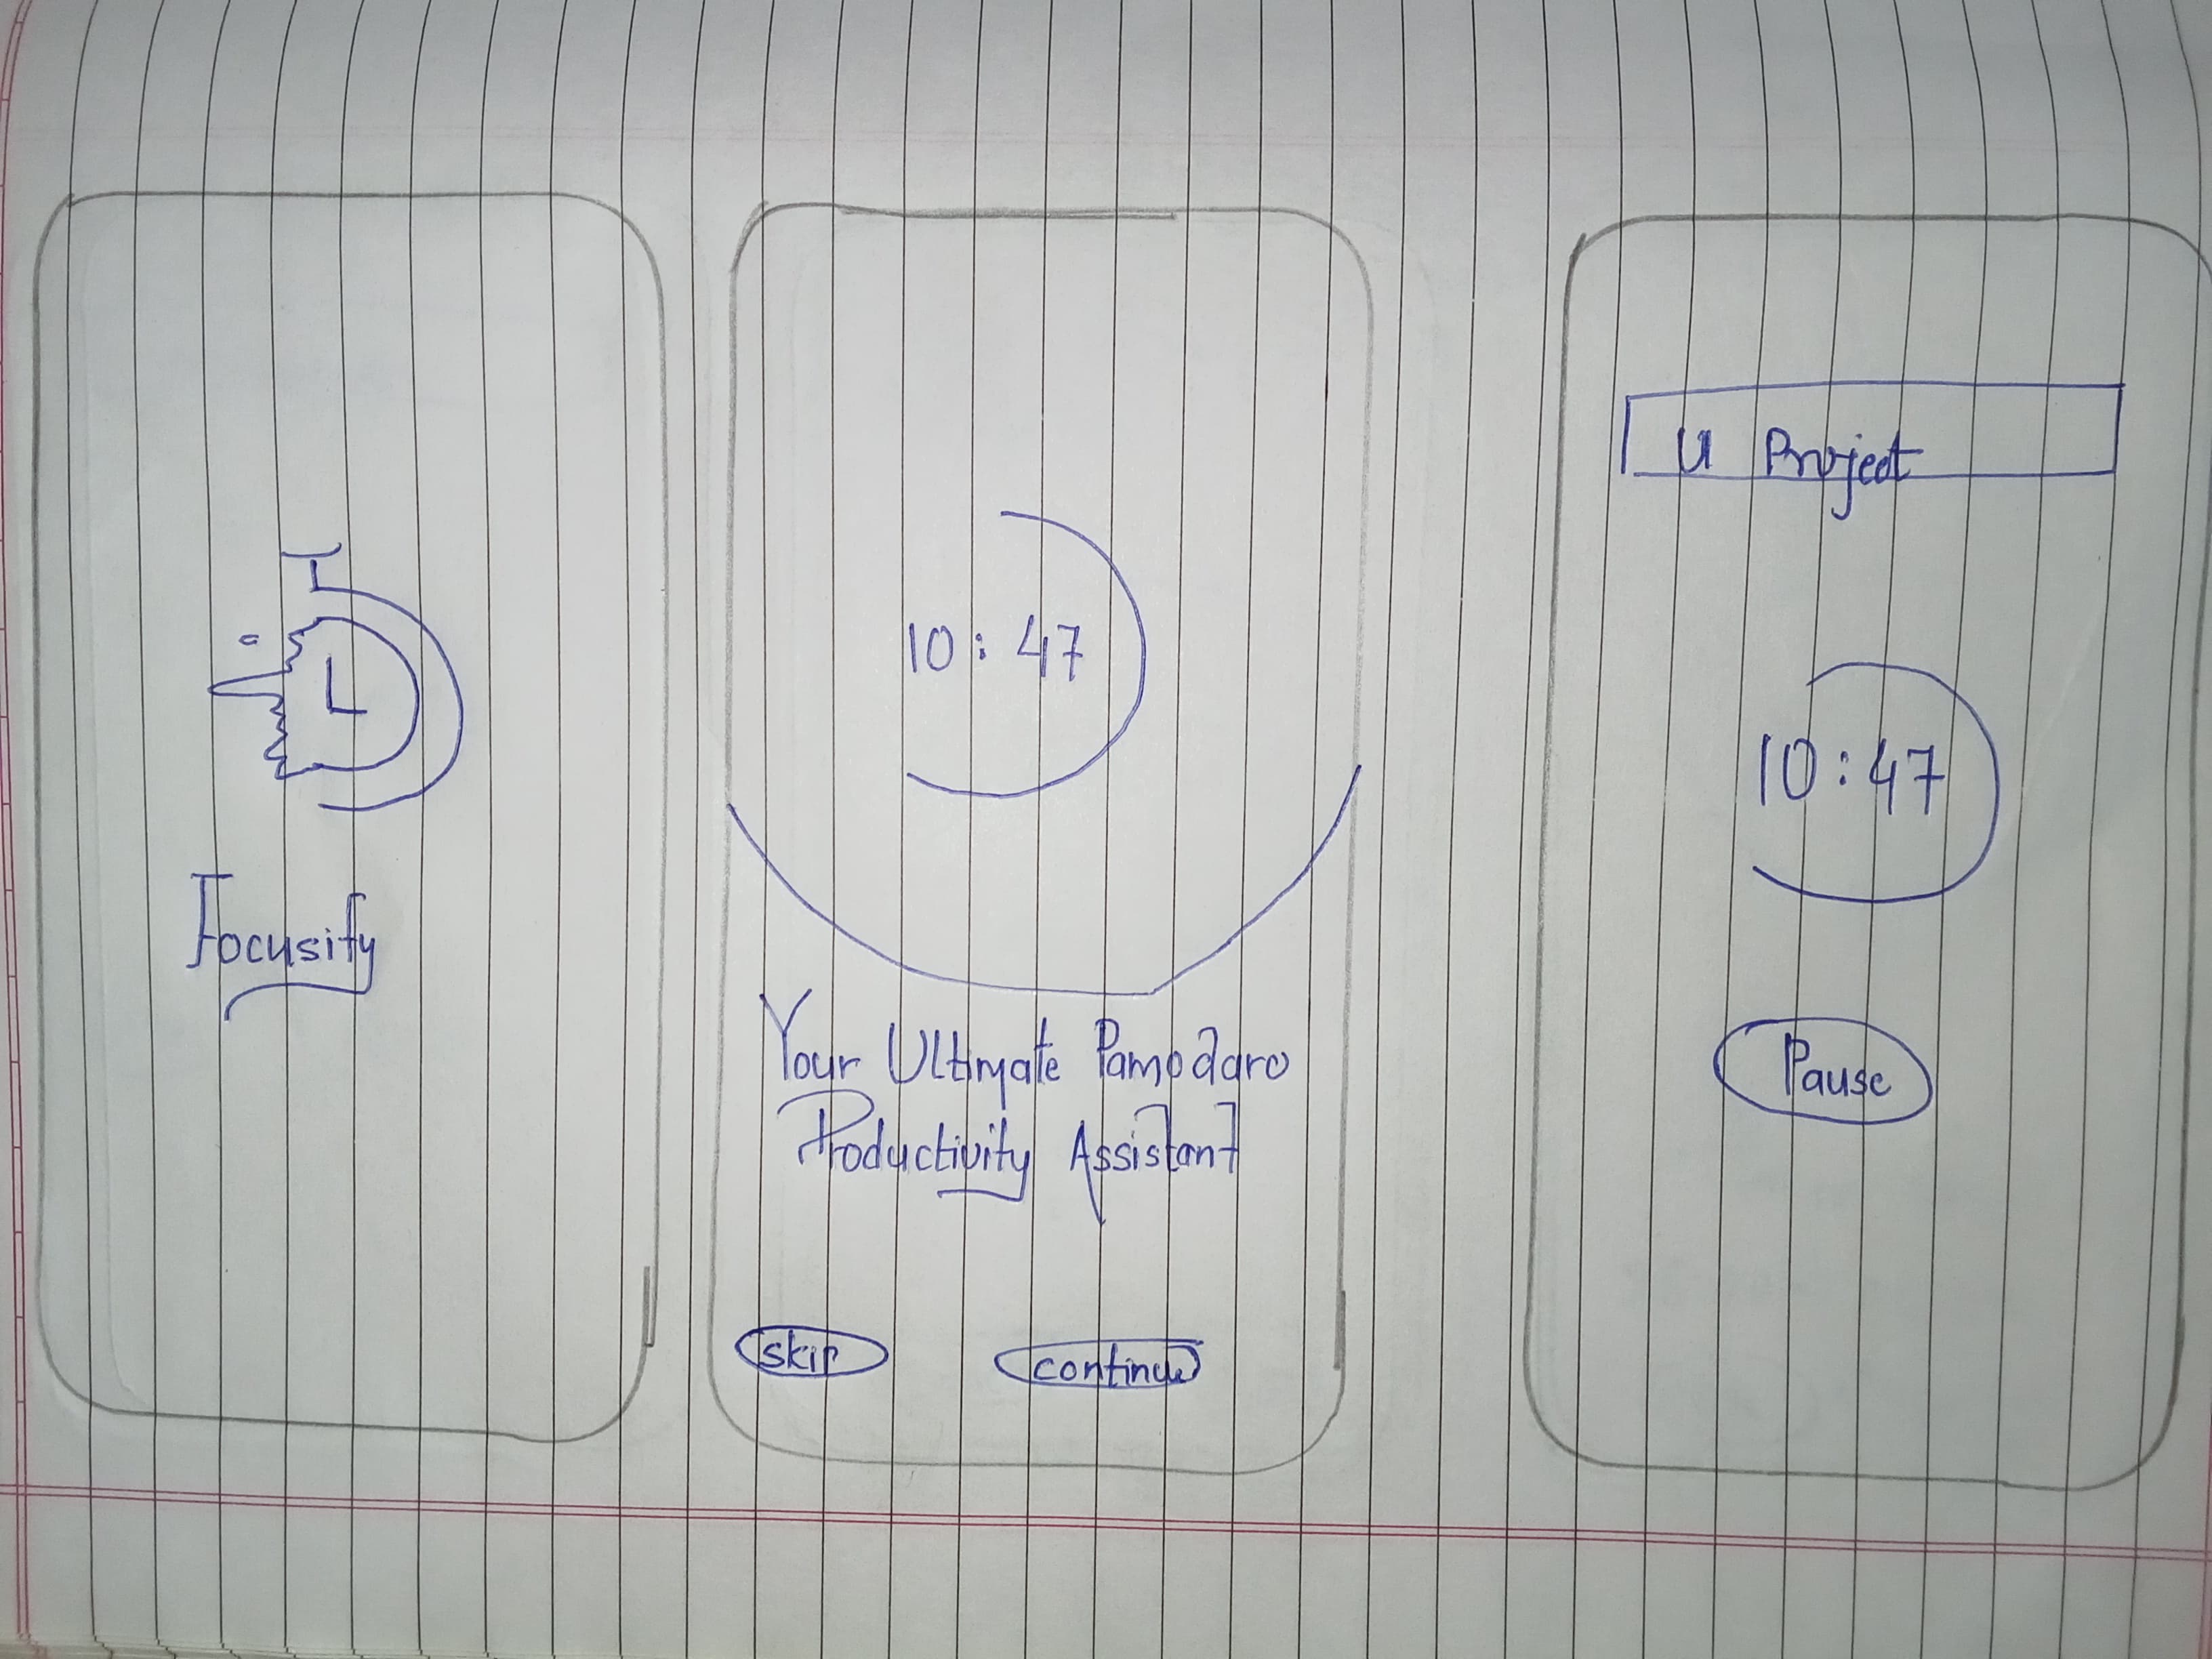 Focusify
10:47
Your Ultimate Pamodaro
Productivity Assistant
skip
continue
U Project
10:47
Pause